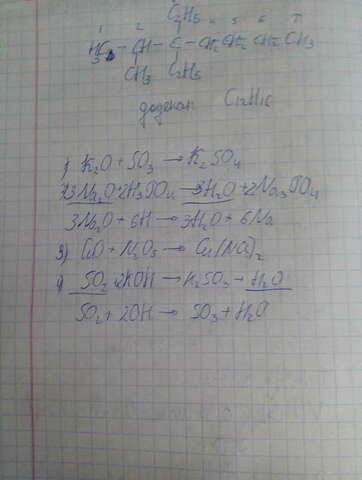 C₂H₅ 4 5 6 7
1 2
H₃C – CH – C – CH₂ CH₂ CH₂ CH₃
CH₃ C₂H₅
додекан C₁₂H₂₆
1) K₂O + SO₃ → K₂SO₄
2) 3Na₂O + 2H₃PO₄ → 3H₂O + 2Na₃PO₄
3Na₂O + 6H → 3H₂O + 6Na
3) CuO + N₂O₅ → Cu(NO₃)₂
4) SO₂ + 2KOH → K₂SO₃ + H₂O
SO₂ + 2OH → SO₃ + H₂O